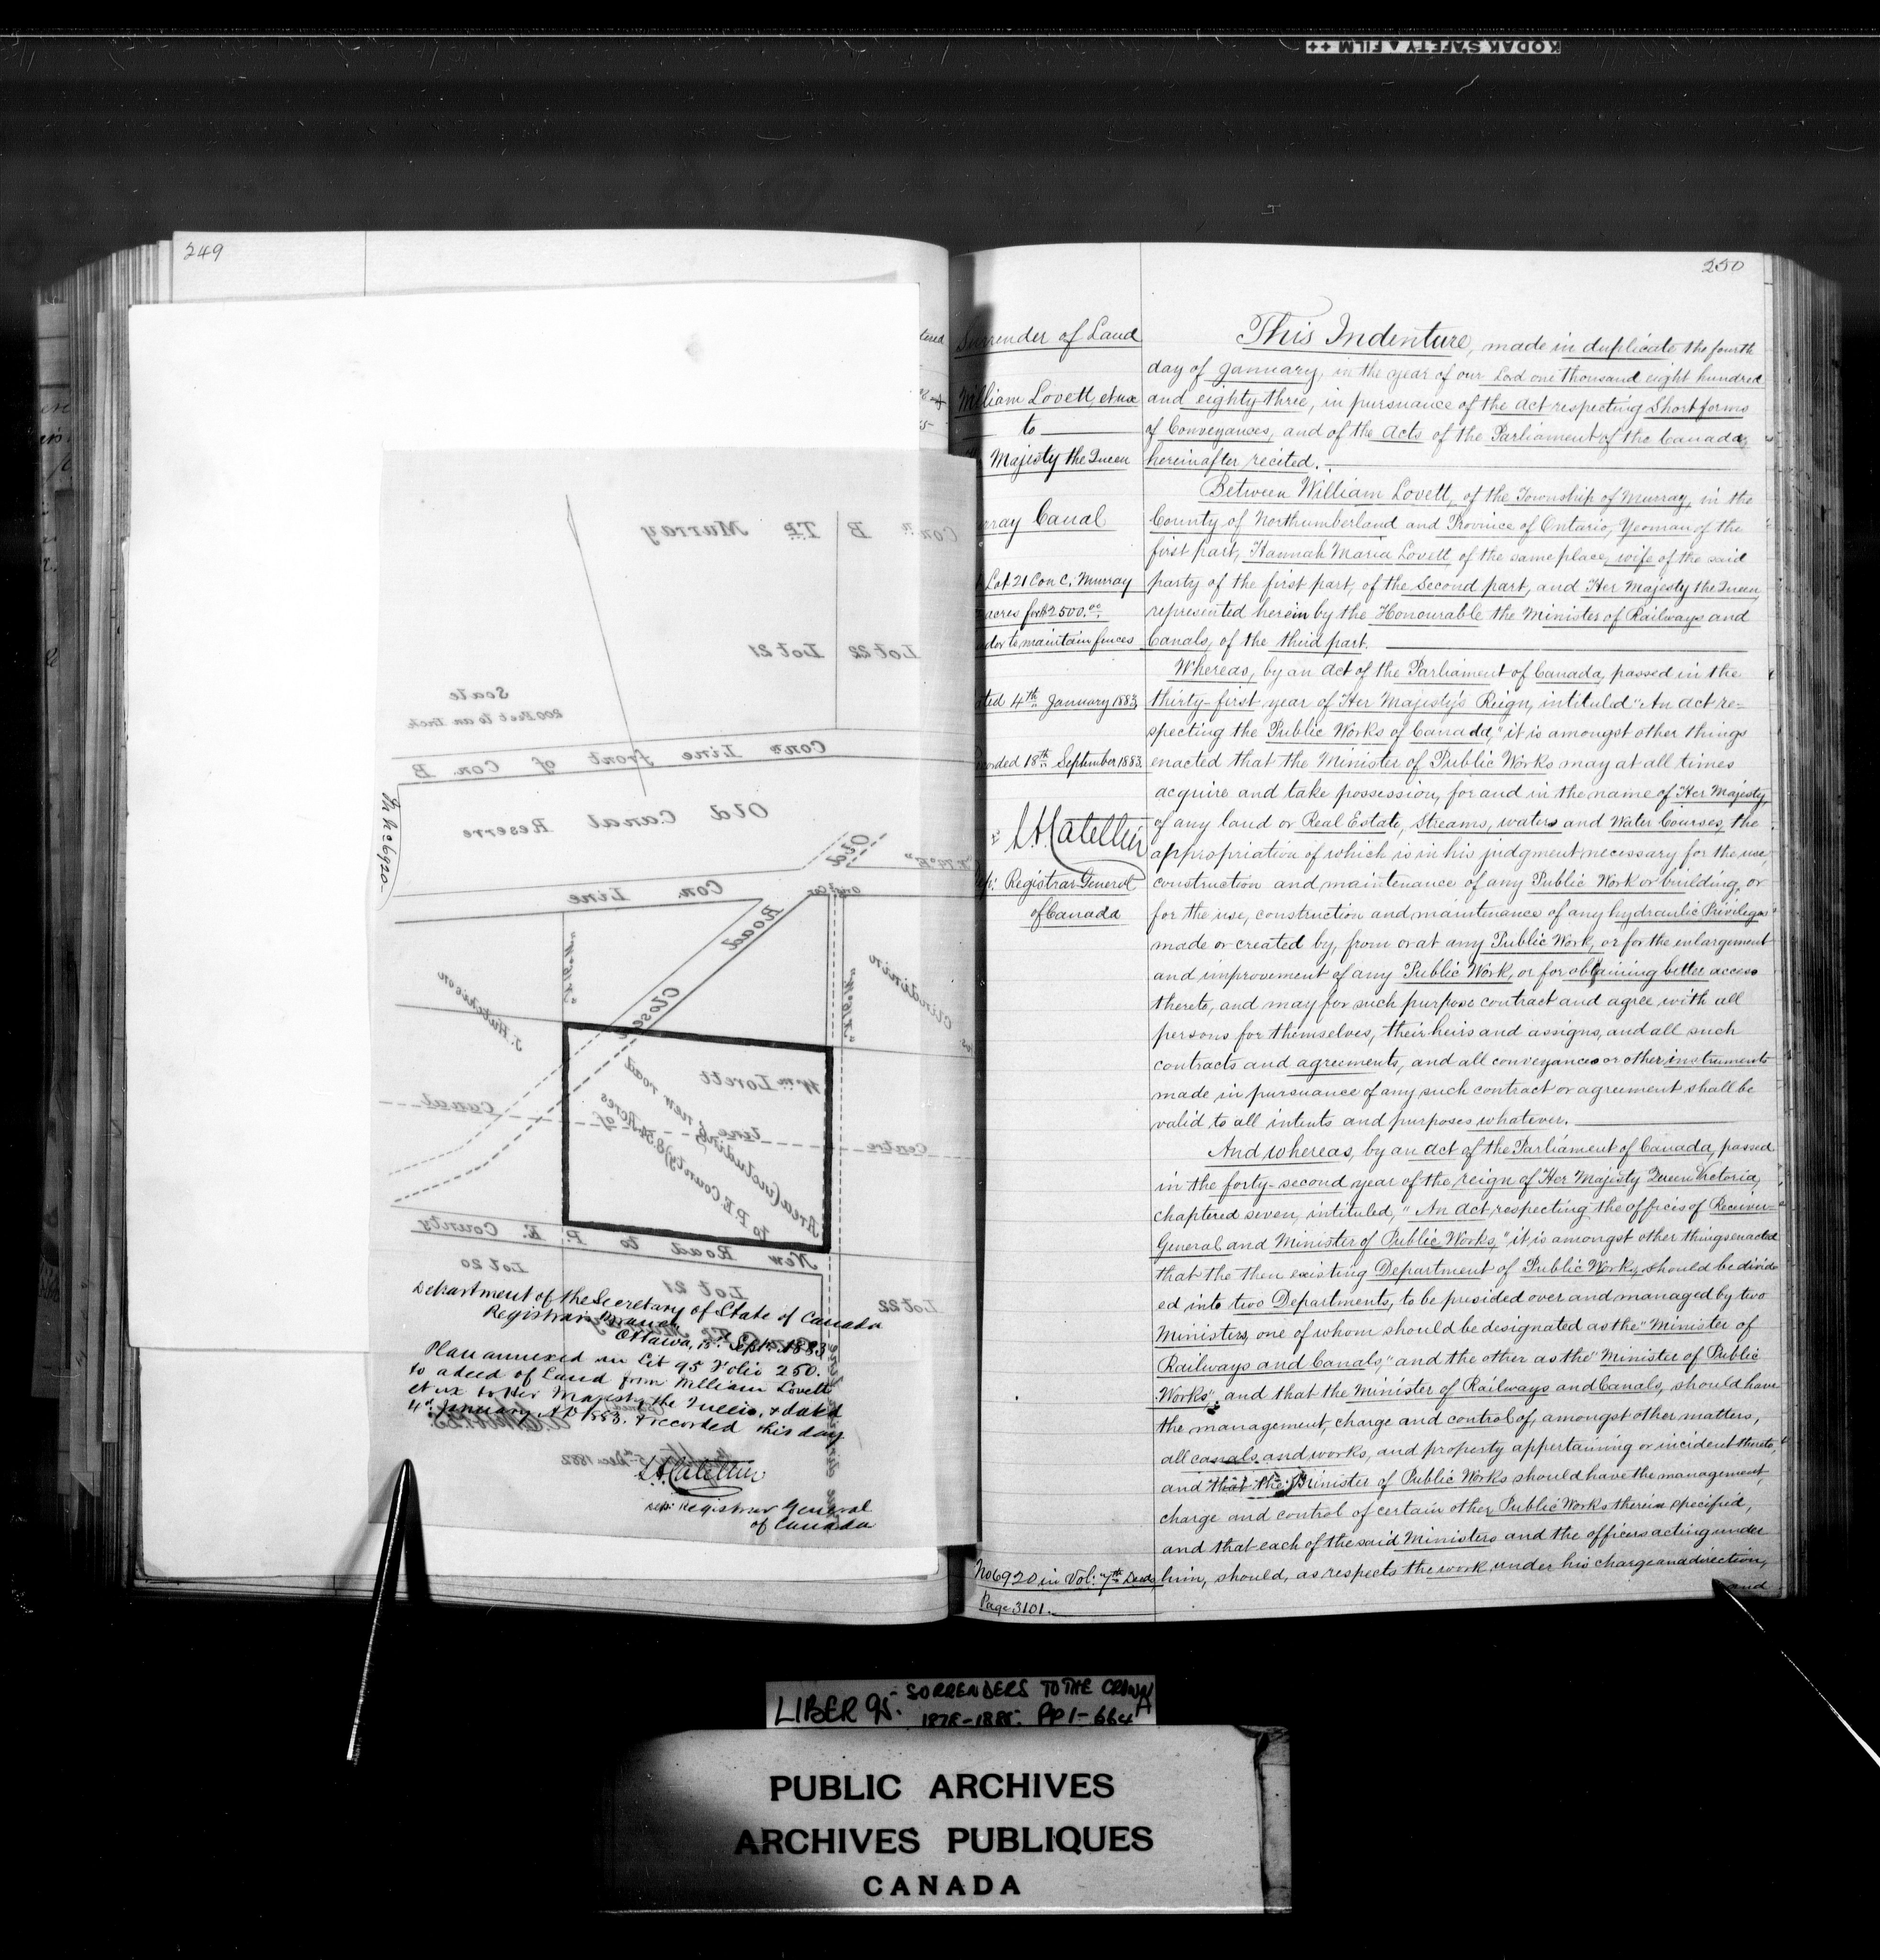 KODAK SAFETY FILM ++
249
250
Surrender of Land
William Lovett, et ux
to
Majesty the Queen
Murray Canal
Lot 21 Con C. Murray
acres for $2500.00
to maintain fences
Dated 4th January 1883
Recorded 18th September 1883.
L.A. Catellier
Registrar General
of Canada
No 6920 in Vol. 7th Deeds
Page 3101.
This Indenture, made in duplicate the fourth
day of January, in the year of our Lord one thousand eight hundred
and eighty three, in pursuance of the Act respecting Short forms
of Conveyances, and of the Acts of the Parliament of the Canada,
hereinafter recited.
Between William Lovett, of the Township of Murray, in the
County of Northumberland and Province of Ontario, Yeoman of the
first part, Hannah Maria Lovett, of the same place, wife of the said
party of the first part, of the Second part, and Her Majesty the Queen,
represented herein by the Honourable the Minister of Railways and
Canals, of the third part.
Whereas, by an Act of the Parliament of Canada, passed in the
thirty-first year of Her Majesty's Reign, intituled "An Act re-
specting the Public Works of Canada," it is amongst other things
enacted that the Minister of Public Works may at all times
acquire and take possession, for and in the name of Her Majesty,
of any land or Real Estate, Streams, waters and Water Courses, the
appropriation of which is in his judgment necessary for the use,
construction and maintenance of any Public Work or building, or
for the use, construction and maintenance of any hydraulic Privileges
made or created by, from or at any Public Work, or for the enlargement
and improvement of any Public Work, or for obtaining better access
thereto, and may for such purpose contract and agree with all
persons for themselves, their heirs and assigns, and all such
contracts and agreements, and all conveyances or other instruments
made in pursuance of any such contract or agreement shall be
valid to all intents and purposes whatever.
And whereas, by an Act of the Parliament of Canada, passed
in the forty-second year of the reign of Her Majesty Queen Victoria,
chaptered seven, intituled, "An Act respecting the offices of Receiver-
General and Minister of Public Works," it is amongst other things enacted
that the then existing Department of Public Works, should be divid-
ed into two Departments, to be presided over and managed by two
Ministers, one of whom should be designated as the "Minister of
Railways and Canals," and the other as the "Minister of Public
Works", and that the Minister of Railways and Canals, should have
the management, charge and control of, amongst other matters,
all canals and works, and property appertaining or incident thereto,
and that the Minister of Public Works should have the management,
charge and control of certain other Public Works therein specified,
and that each of the said Ministers and the officers acting under
him, should, as respects the work under his charge and direction,
and
Con. B Tp. Murray
Lot 22 Lot 21
Scale
200 feet to an inch
Con. Line front of Con. B
Old Canal Reserve
Old
Con. Line
Road
Closed
J. Hutchison
Clindinin
Wm. Lovett
Centre line of Canal
Area (including new road
to P.E. County) 8.34 Acres
New Road to P. E. County
Lot 20
Lot 21
Lot 22
5th Dec. 1882
Department of the Secretary of State of Canada
Registrar's Branch
Ottawa, 18th Sept. 1883
Plan annexed in Lib 95 Folio 250.
to a deed of Land from William Lovett
et ux to Her Majesty the Queen, & dated
4th January A.D 1883. & recorded this day.
L.A. Catellier
Dep. Registrar General
of Canada
LIBER 95. SORRENDERS TO THE CROWN
1878-1885. PP 1-664A
PUBLIC ARCHIVES
ARCHIVES PUBLIQUES
CANADA